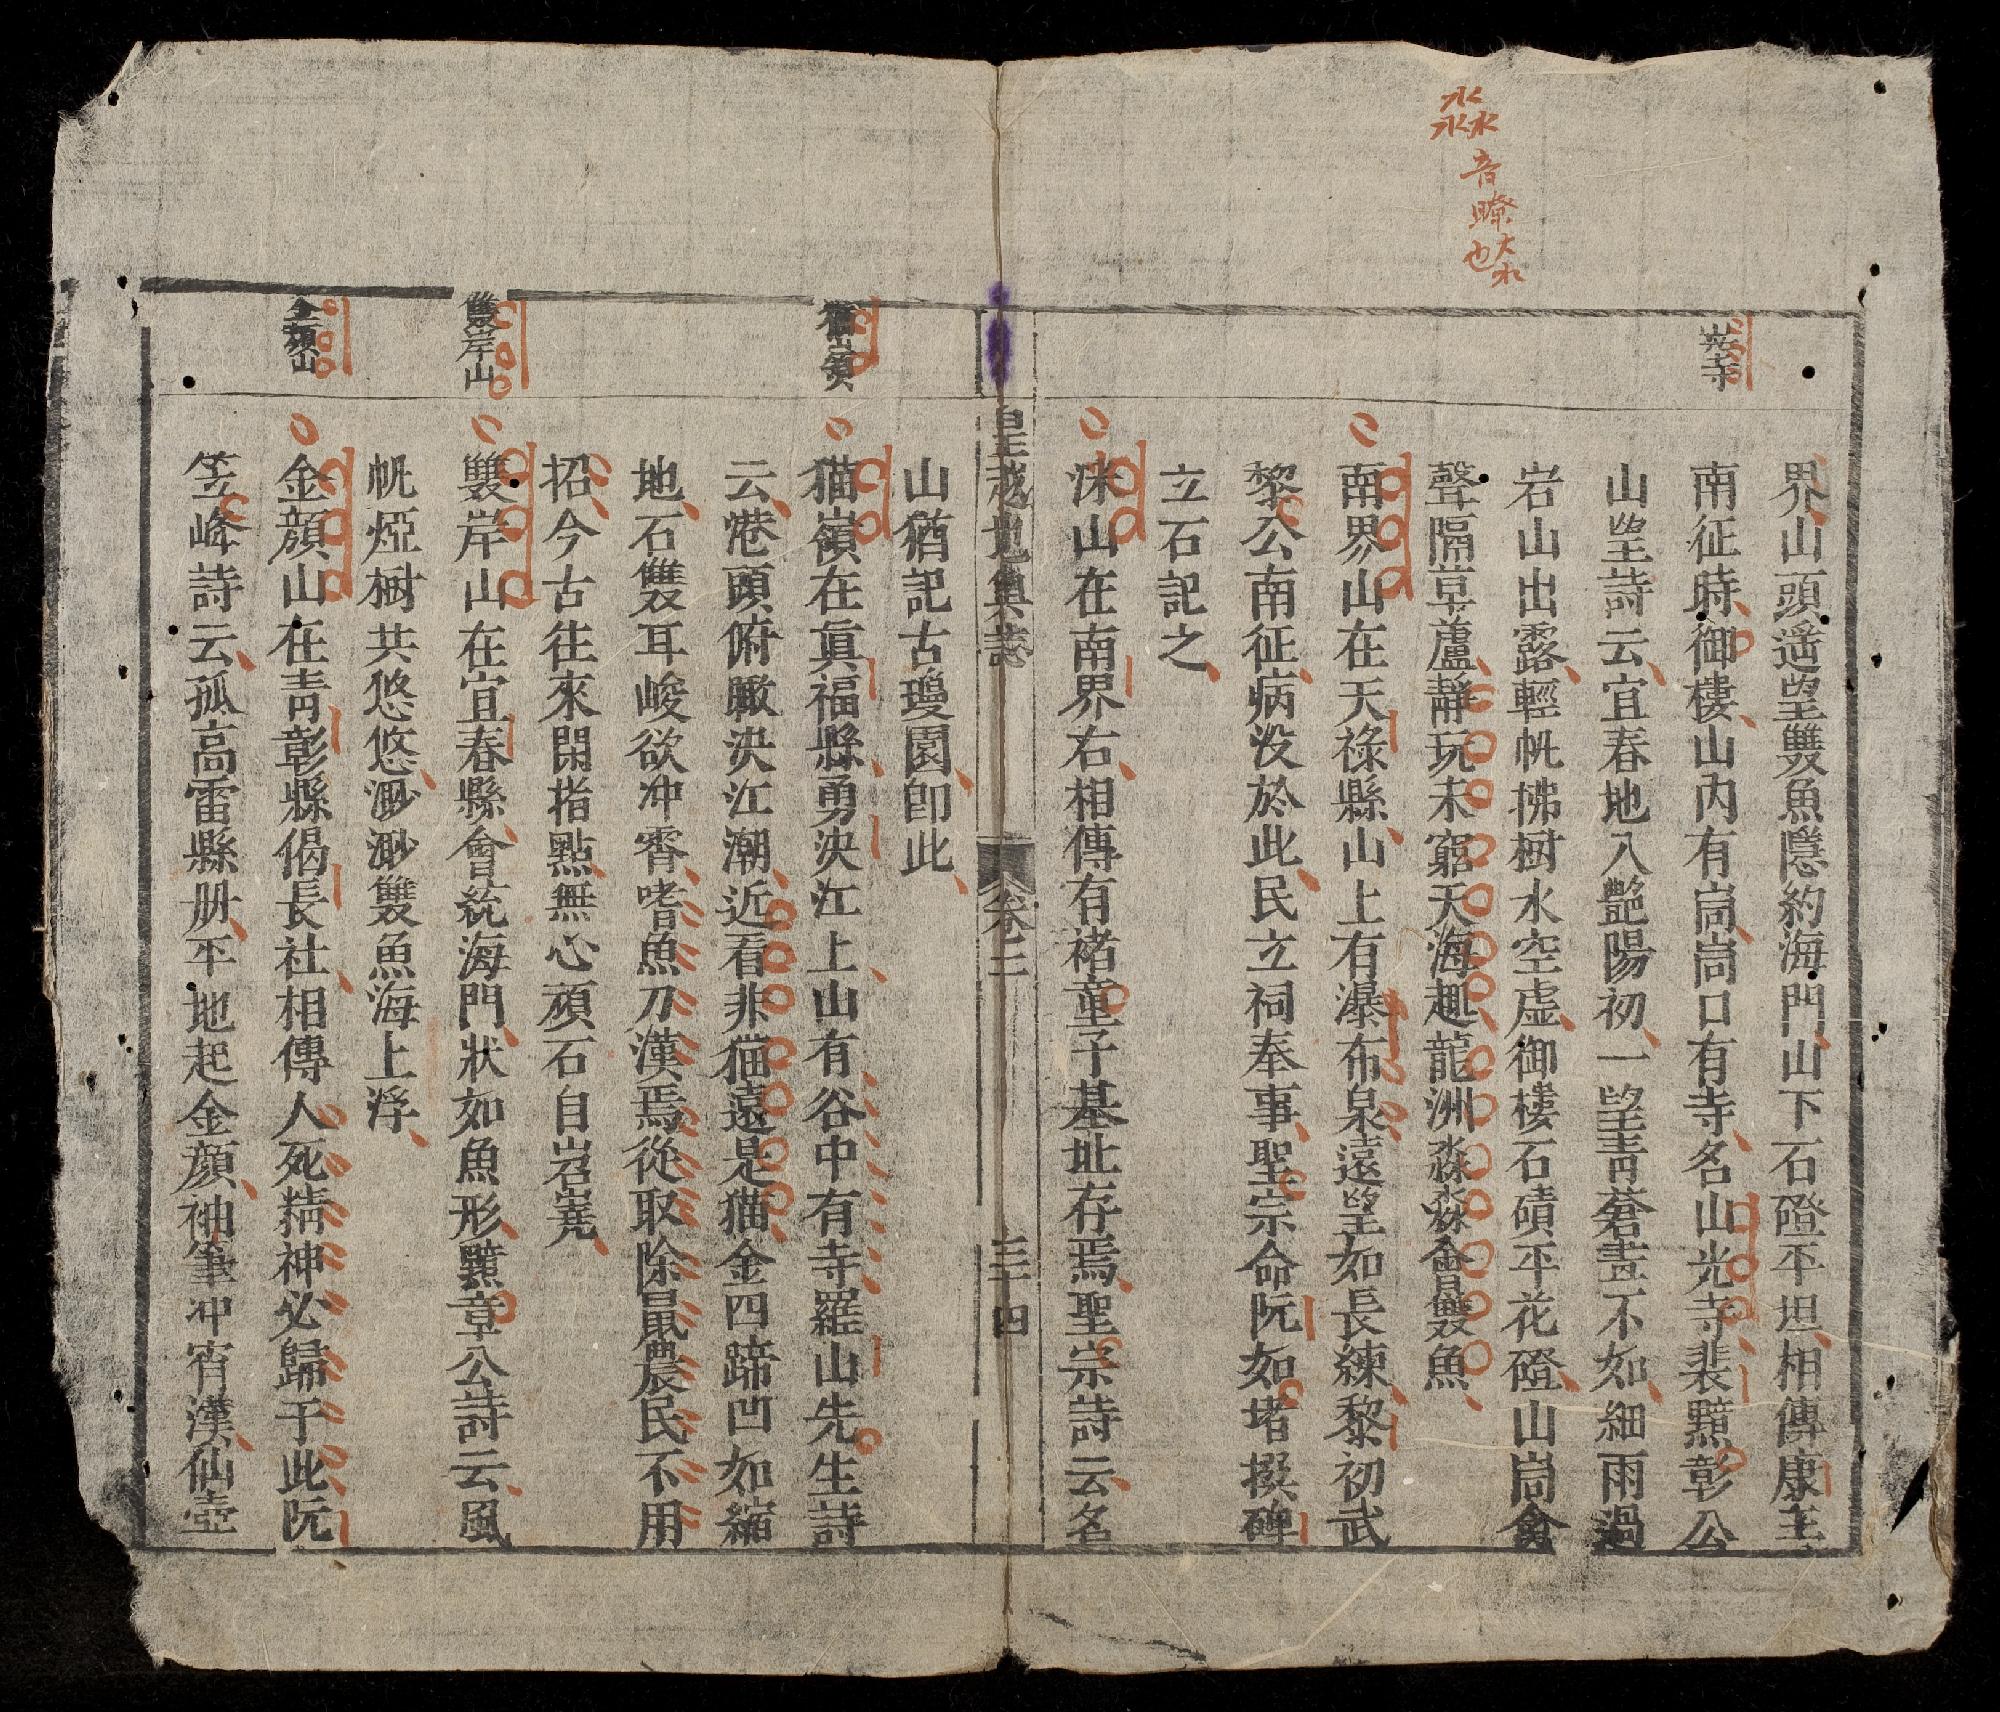 淼 音瞭大水也
光寺
界山頭遥望雙魚隱約海門山下石磴平坦相傳康王
南征時御樓山內有峝峝口有寺名山光寺裴黯彰公
山望詩云宜春地入艷陽初一望青蒼畫不如細雨過
岩山出露輕帆拂樹水空虛御樓石磧平花磴山峝禽
聲隔草蘆靜玩未窮天海趣龍洲淼淼會雙魚
南界山在天祿縣山上有瀑布泉遠望如長練黎初武
黎公南征病没於此民立祠奉事聖宗命阮如堵撰碑
立石記之
洡山在南界右相傳有褚童子基址存焉聖宗詩云名
皇越地輿誌
卷二
三十四
山猶記古瓊園卽此
猫嶺
猫嶺在眞福縣勇決江上山有谷中有寺羅山先生詩
云港頭俯瞰決江潮近看非猫遠是猫金四蹄凹如縮
地石雙耳峻欲冲霄嗜魚刀漢焉從取除鼠農民不用
招今古往來閑指點無心頑石自岧嶤
雙岸山
雙岸山在宜春縣會統海門狀如魚形黯章公詩云風
帆煙樹共悠悠渺渺雙魚海上浮
金顏山
金顏山在青彰縣偈長社相傳人死精神必歸于此阮
笠峰詩云孤高雷縣册平地起金顏神筆冲宵漢仙壺